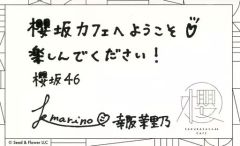 櫻坂カフェへようこそ
楽しんでください！
櫻坂46
marino 幸阪茉里乃
櫻
SAKURAZAKA46 CAFE
© Seed & Flower LLC